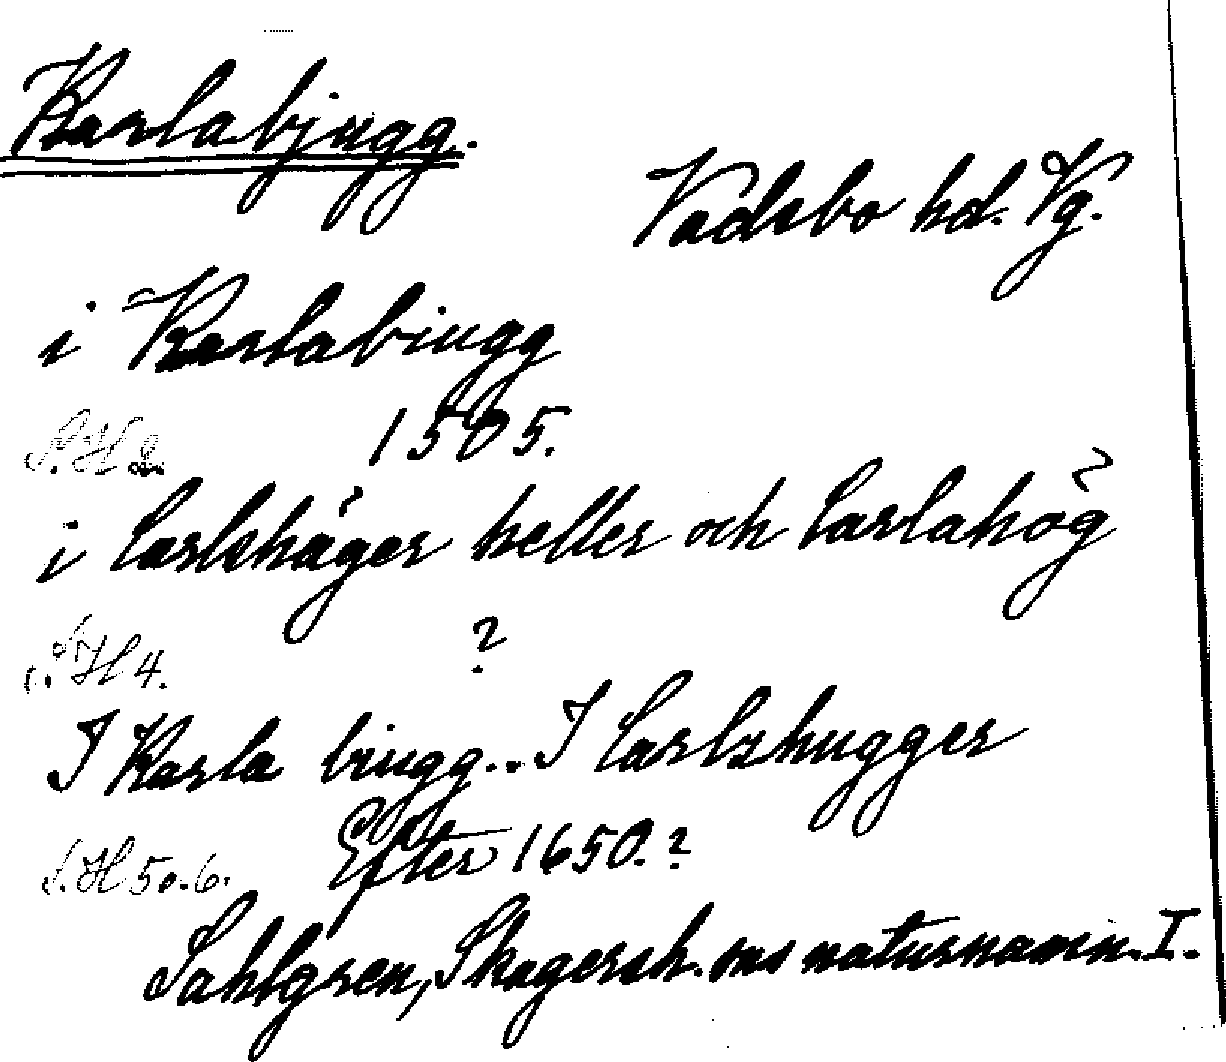 Karlabjugg.
Vadsbo hd. Vg.
i Karlabiugg
1505.
S.H 2.
i Carlshåger heller och Carlahög
?
S.H 4.
I Karla biugg.. I Carlzhugger
S.H 5 o. 6. Efter 1650.?
Sahlgren, Skagersh. sns naturnamn. I.